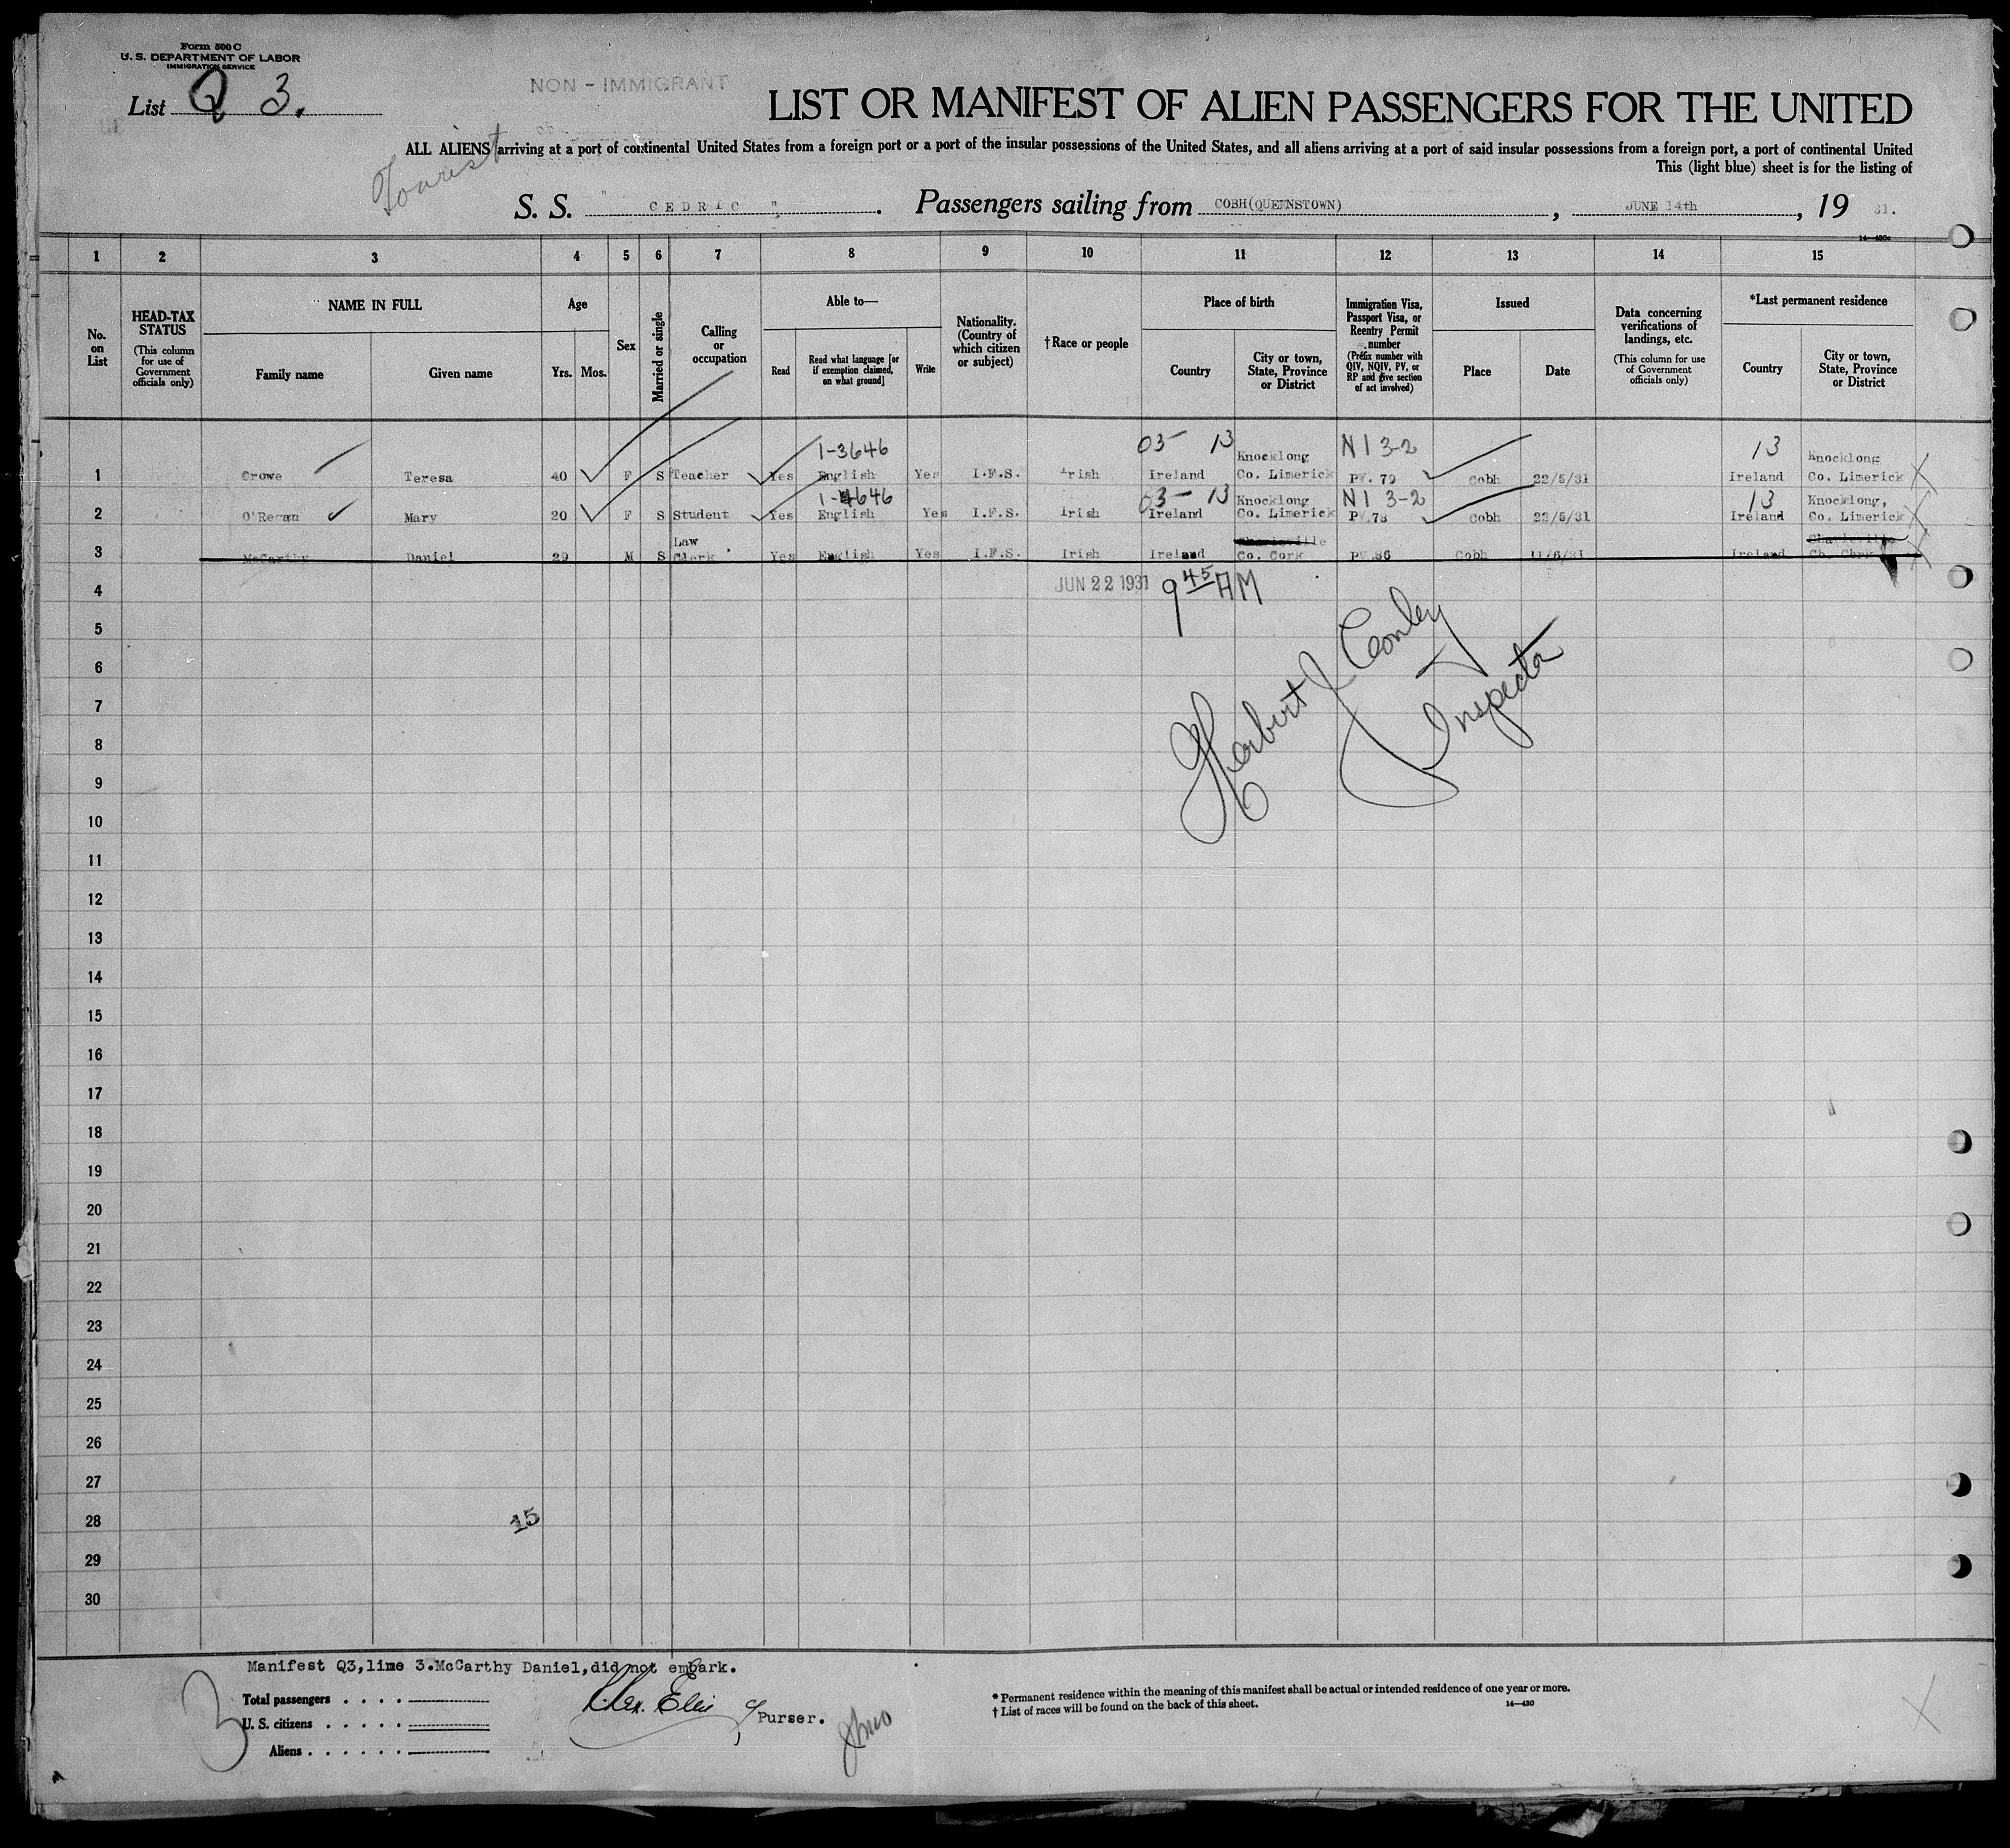 Form 500 C
U. S. DEPARTMENT OF LABOR
IMMIGRATION SERVICE
List Q 3.
NON - IMMIGRANT
LIST OR MANIFEST OF ALIEN PASSENGERS FOR THE UNITED
Tourist
ALL ALIENS arriving at a port of continental United States from a foreign port or a port of the insular possessions of the United States, and all aliens arriving at a port of said insular possessions from a foreign port, a port of continental United
This (light blue) sheet is for the listing of
S. S. " CEDRIC ". Passengers sailing from COBH(QUEENSTOWN), JUNE 14th, 19 31.
14—430c
1 2 3 4 5 6 7 8 9 10 11 12 13 14 15
No. on List
HEAD-TAX STATUS
(This column for use of Government officials only)
NAME IN FULL
Family name
Given name
Age
Yrs. Mos.
Sex
Married or single
Calling or occupation
Able to—
Read
Read what language [or if exemption claimed, on what ground]
Write
Nationality. (Country of which citizen or subject)
†Race or people
Place of birth
Country
City or town, State, Province or District
Immigration Visa, Passport Visa, or Reentry Permit number
(Prefix number with QIV, NQIV, PV, or RP and give section of act involved)
Issued
Place
Date
Data concerning verifications of landings, etc.
(This column for use of Government officials only)
*Last permanent residence
Country
City or town, State, Province or District
1-3646 03- 13 Knocklong N I 3-2 13 Knocklong
1 Crowe Teresa 40 F S Teacher Yes English Yes I.F.S. Irish Ireland Co. Limerick PV. 79 Cobh 22/5/31 Ireland Co. Limerick
1-4646 03- 13 Knocklong N I 3-2 13 Knocklong,
2 O'Regan Mary 20 F S Student Yes English Yes I.F.S. Irish Ireland Co. Limerick PV.78 Cobh 22/5/31 Ireland Co. Limerick
Law Charleville Charleville
3 McCarthy Daniel 29 M S Clerk Yes English Yes I.F.S. Irish Ireland Co. Cork PV.86 Cobh 11/6/31 Ireland Co. Cork
4 JUN 22 1931 9 45 AM
5
6
7
8
9
10
11
12
13
14
15
16
17
18
19
20
21
22
23
24
25
26
27
28
29
30
Herbert J Conley
Inspector
15
Manifest Q3,lime 3.McCarthy Daniel,did not embark.
3
Total passengers
U. S. citizens
Aliens
Purser.
* Permanent residence within the meaning of this manifest shall be actual or intended residence of one year or more.
† List of races will be found on the back of this sheet.
14—430